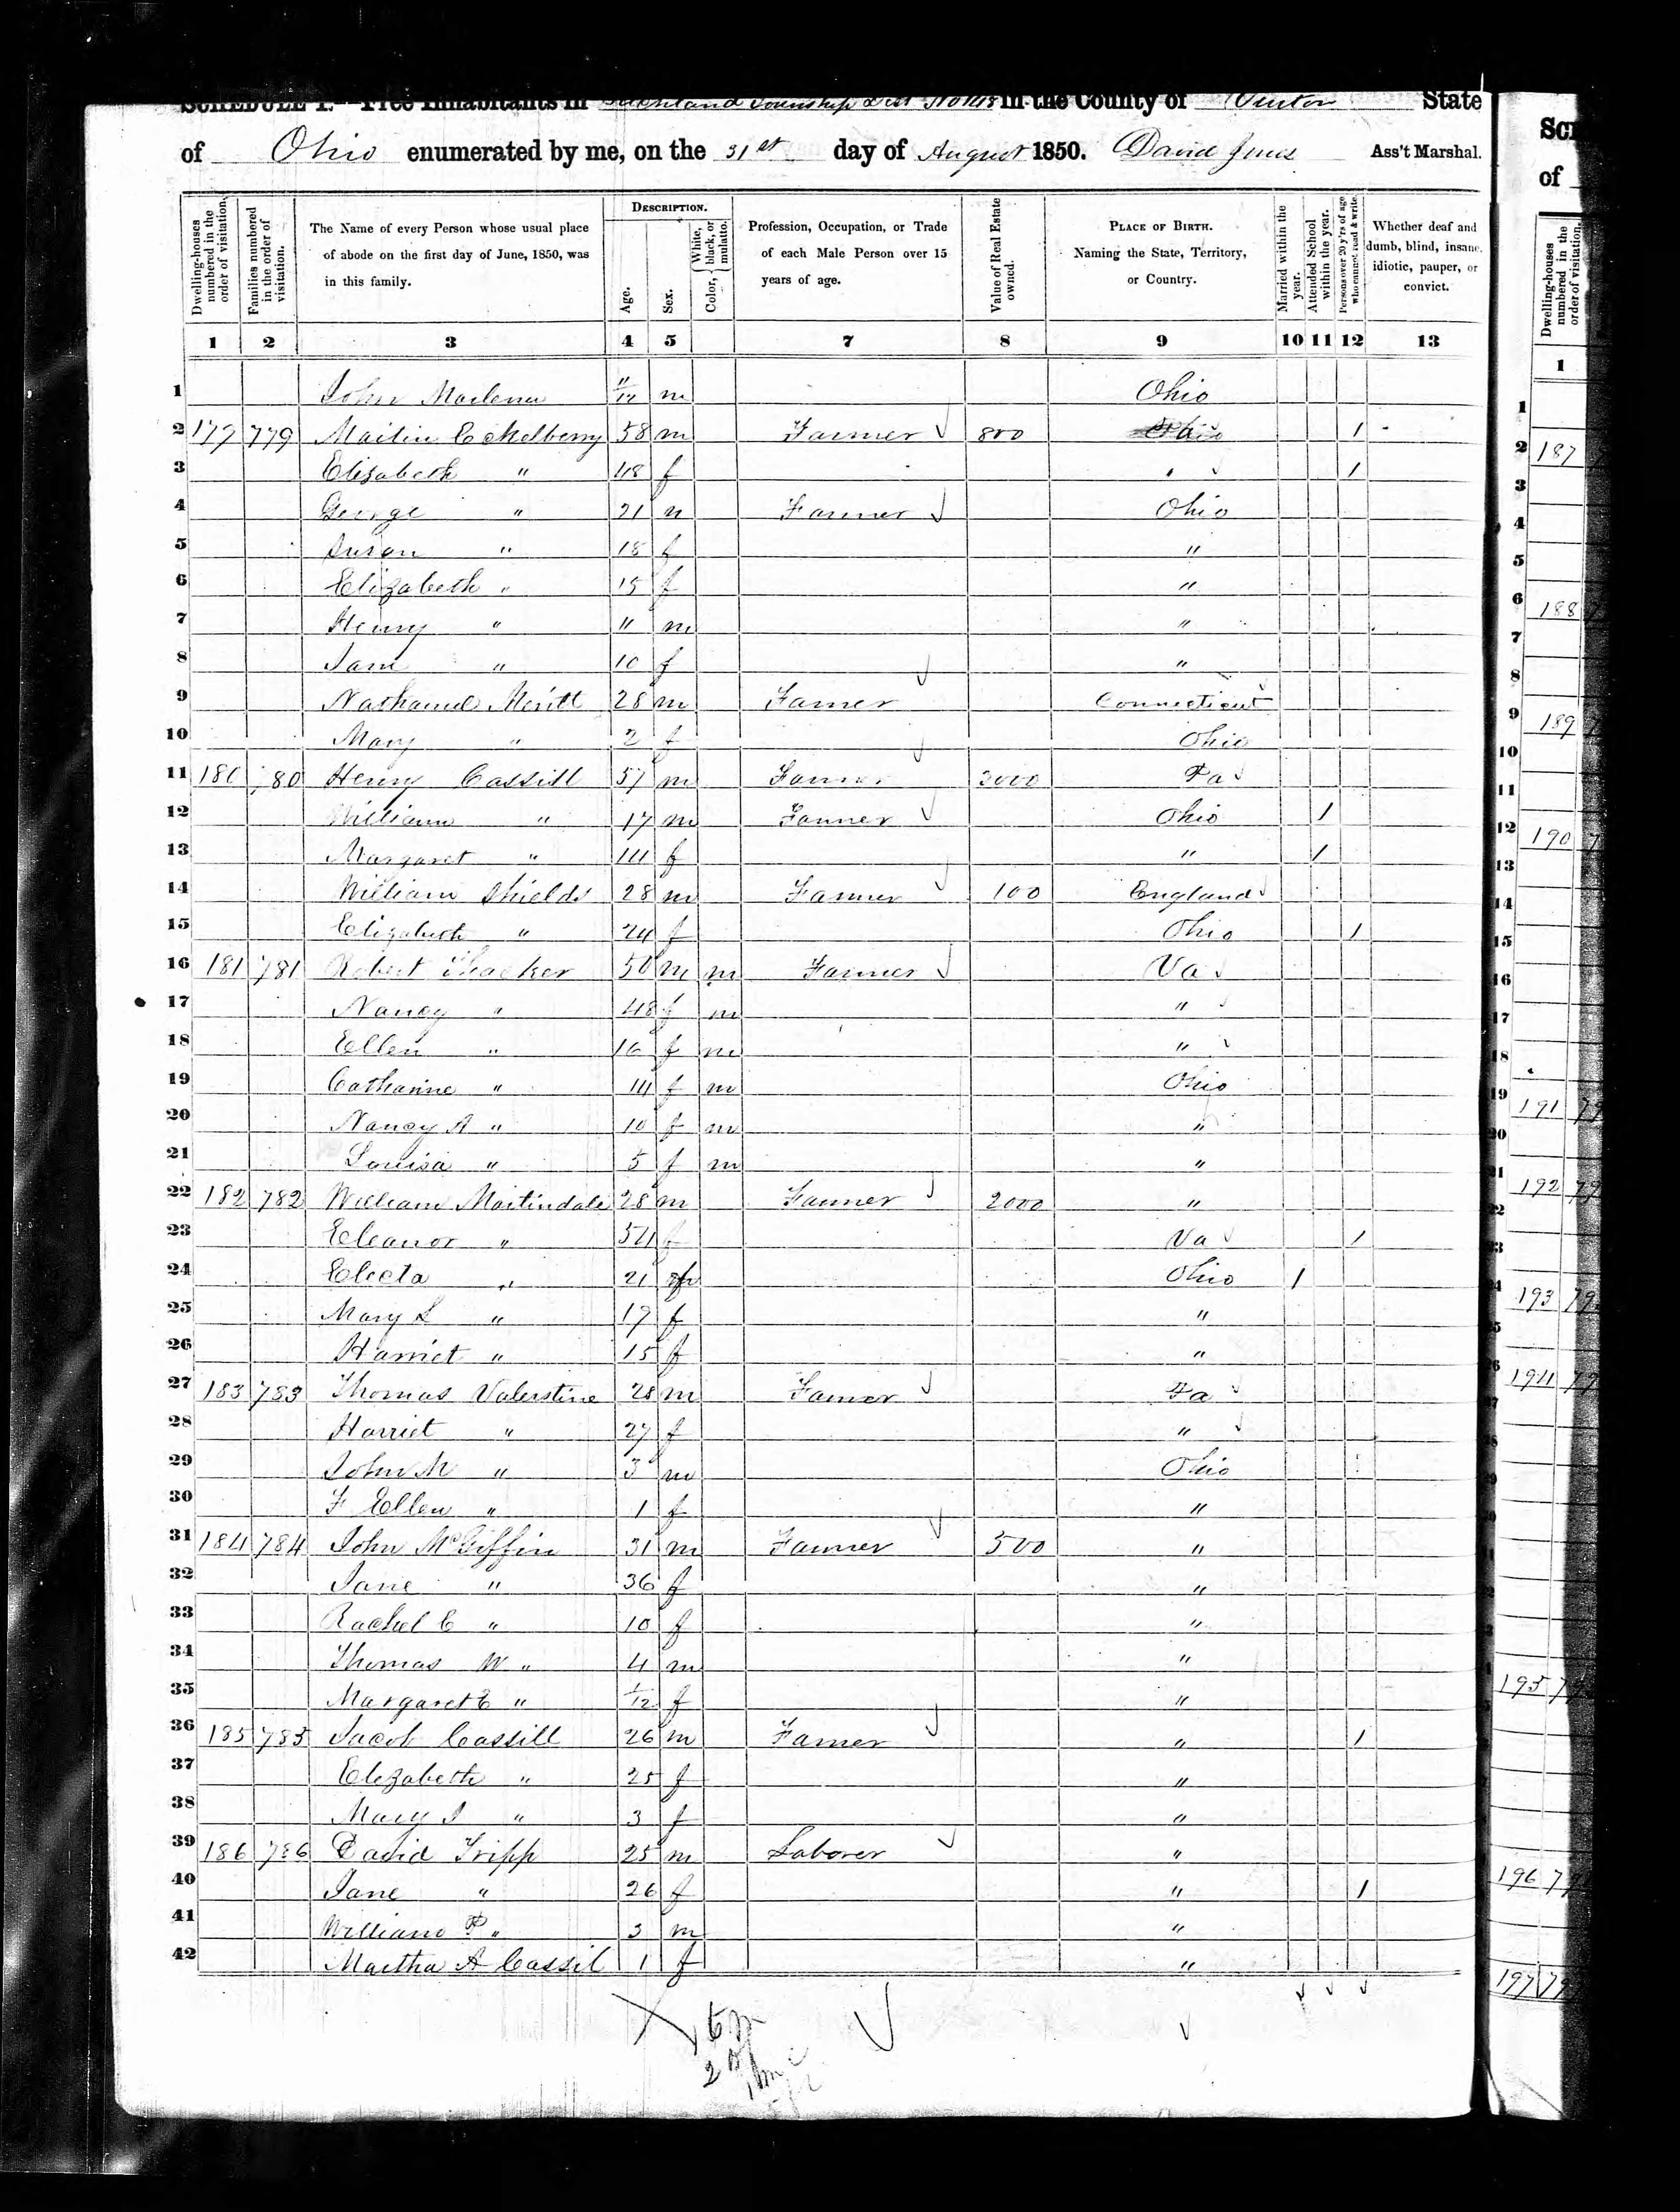 SCHEDULE I. Free Inhabitants in Richland Township in the County of Vinton State
of Ohio enumerated by me, on the 31st day of August 1850. David Jones Ass't Marshal.
Dwelling-houses numbered in the order of visitation.
Families numbered in the order of visitation.
The Name of every Person whose usual place of abode on the first day of June, 1850, was in this family.
DESCRIPTION.
Age.
Sex.
Color, { White, black, or mulatto.
Profession, Occupation, or Trade of each Male Person over 15 years of age.
Value of Real Estate owned.
PLACE OF BIRTH. Naming the State, Territory, or Country.
Married within the year.
Attended School within the year.
Persons over 20 y'rs of age who cannot read & write.
Whether deaf and dumb, blind, insane, idiotic, pauper, or convict.
1 2 3 4 5 7 8 9 10 11 12 13
1 John 11/12 m Ohio
2 179 779 Martin Eckelberry 58 m Farmer 800 1
3 Elizabeth " 48 f " 1
4 George " 21 m Farmer Ohio
5 Susan " 18 f "
6 Elizabeth " 15 f "
7 Henry " 11 m "
8 Jane " 10 f "
9 Nathaniel Meritt 28 m Farmer Connecticut
10 Mary " 2 f Ohio
11 180 780 Henry Cassill 57 m Farmer 3000 Pa
12 William " 17 m Farmer Ohio 1
13 Margaret " 14 f " 1
14 William Shields 28 m Farmer 100 England
15 Elizabeth " 24 f Ohio 1
16 181 781 Robert Thacker 50 m m Farmer Va
17 Nancy " 48 f m "
18 Ellen " 16 f m "
19 Catharine " 14 f m Ohio
20 Nancy A " 10 f m "
21 Louisa " 5 f m "
22 182 782 William Martindale 28 m Farmer 2000 "
23 Eleanor " 54 f Va 1
24 Electa " 21 f Ohio 1
25 Mary L " 19 f "
26 Harriet " 15 f "
27 183 783 Thomas Valenstine 28 m Farmer Pa
28 Harriet " 27 f "
29 John M " 3 m Ohio
30 F Ellen " 1 f "
31 184 784 John McGiffin 31 m Farmer 500 "
32 Jane " 36 f "
33 Rachel C " 10 f "
34 Thomas W " 4 m "
35 Margaret E " 1/12 f "
36 185 785 Jacob Cassill 26 m Farmer " 1
37 Elizabeth " 25 f "
38 Mary J " 3 f "
39 186 786 David Tripp 25 m Laborer "
40 Jane " 26 f " 1
41 William P " 3 m "
42 Martha A Cassil 1 f "
SCH
of
Dwelling-houses numbered in the order of visitation.
1
1
2 187
3
4
5
6 188
7
8
9 189
10
11
12 190
13
14
15
16
17
18
19 191
20
21 192
193
194
195
196
197